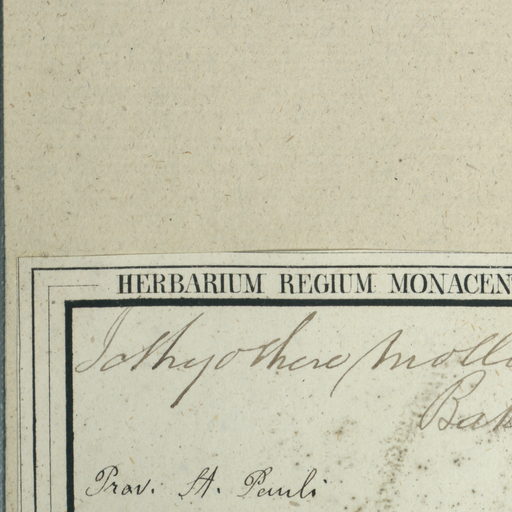 HERBARIUM REGIUM MONACEN
Icthyothere molli
Bak
Prov. St. Pauli